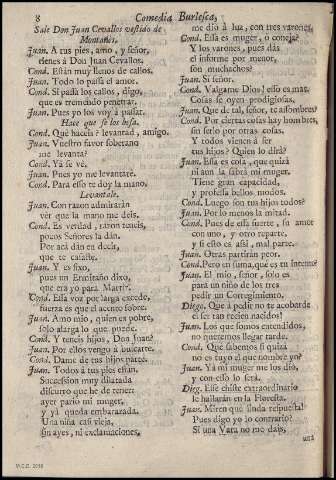 8 Comedia Burlesca,
Sale Don Juan Cevallos vestido de
Montañès.
Juan. A tus pies, amo, y señor,
tienes à Don Juan Cevallos.
Cond. Estàn muy llenos de callos.
Juan. Todo lo passa el amor.
Cond. Si passa los callos, digo,
que es tremendo penetrar.
Juan. Pues yo los voy à passar.
Hace que se los besa.
Cond. Què haceis? levantad, amigo.
Juan. Vuestro favor soberano
me levanta?
Cond. Yà se vè.
Juan. Pues yo me levantarè.
Cond. Para esso te doy la mano.
Levantale.
Juan. Con razon admiraràn
ver que la mano me deis.
Cond. Es verdad, raros teneis,
pocos Señores la dàn.
Por acà dàn en decir,
que te caiste.
Juan. Y es fixo,
pues un Ermitaño dixo,
que era yo para Martyr.
Cond. Essa voz por larga excede,
fuerza es que el acento sobre.
Juan. Amo mio, quien es pobre,
solo alarga lo que puede.
Cond. Y teneis hijos, Don Juan?
Juan. Por ellos vengo à buscarte.
Cond. Dame de tus hijos parte.
Juan. Todos à tus pies estàn.
Succession muy dilatada
discurro que he de tener:
ayer pariò mi muger,
y yà queda embarazada.
Una niña casi vieja,
sin ayes, ni exclamaciones,
me diò à luz, con tres varones.
Cond. Essa es muger, ò coneja?
Y los varones, pues dàs
el informe por menor,
son muchachos?
Juan. Sì señor.
Cond. Valgame Dios! esso es mas.
Cosas se oyen prodigiosas.
Juan. Que de tal, señor, te assombres?
Cond. Por ciertas cosas hay hombres,
sin serlo por otras cosas.
Y todos vienen à ser
tus hijos? Quien lo dirà?
Juan. Essa es cosa, que quizà
ni aun la sabrà mi muger.
Tiene gran capacidad,
y professa bellos modos.
Cond. Luego son tus hijos todos?
Juan. Por lo menos la mitad.
Cond. Pues de essa suerte, su amor
con uno, y otro reparte,
y si esto es assi, mal parte.
Juan. Otras partiràn peor.
Cond. Pero en suma, què es tu intento?
Juan. El mio, señor, solo es
para un niño de los tres
pedir un Corregimiento.
Dieg. Què à pedir no te acobarde
el ser tan recien nacidos!
Juan. Los que somos entendidos,
no queremos llegar tarde.
Cond. Què sabemos si quizà
no es tuyo el que nombre yo?
Juan. Yà mi muger me los diò,
y con esso lo serà.
Dieg. Esse chiste extraordinario
le hallaràn en la Floresta.
Juan. Miren què linda respuesta!
Pues digo yo lo contrario?
Si una Vara no me dais,
una